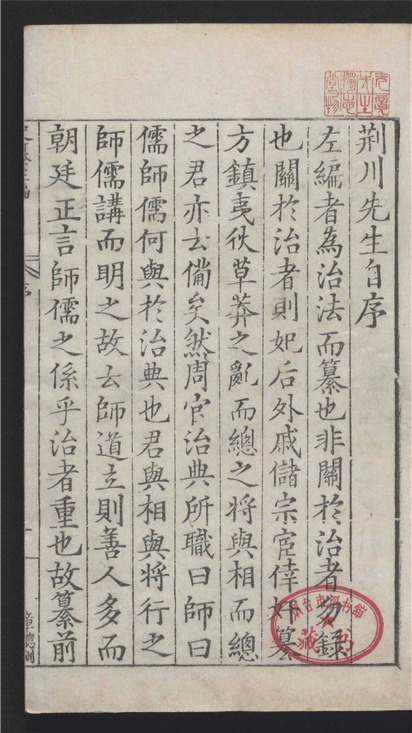 荆川先生自序
左編者為治法而纂也非關於治者勿錄
也關於治者則妃后外戚儲宗宦倖奸纂
方鎮夷狄草莽之亂而總之將與相而總
之君亦云備矣然周官治典所職曰師曰
儒師儒何與於治典也君與相與將行之
師儒講而明之故云師道立則善人多而
朝廷正言師儒之係乎治者重也故纂前
序